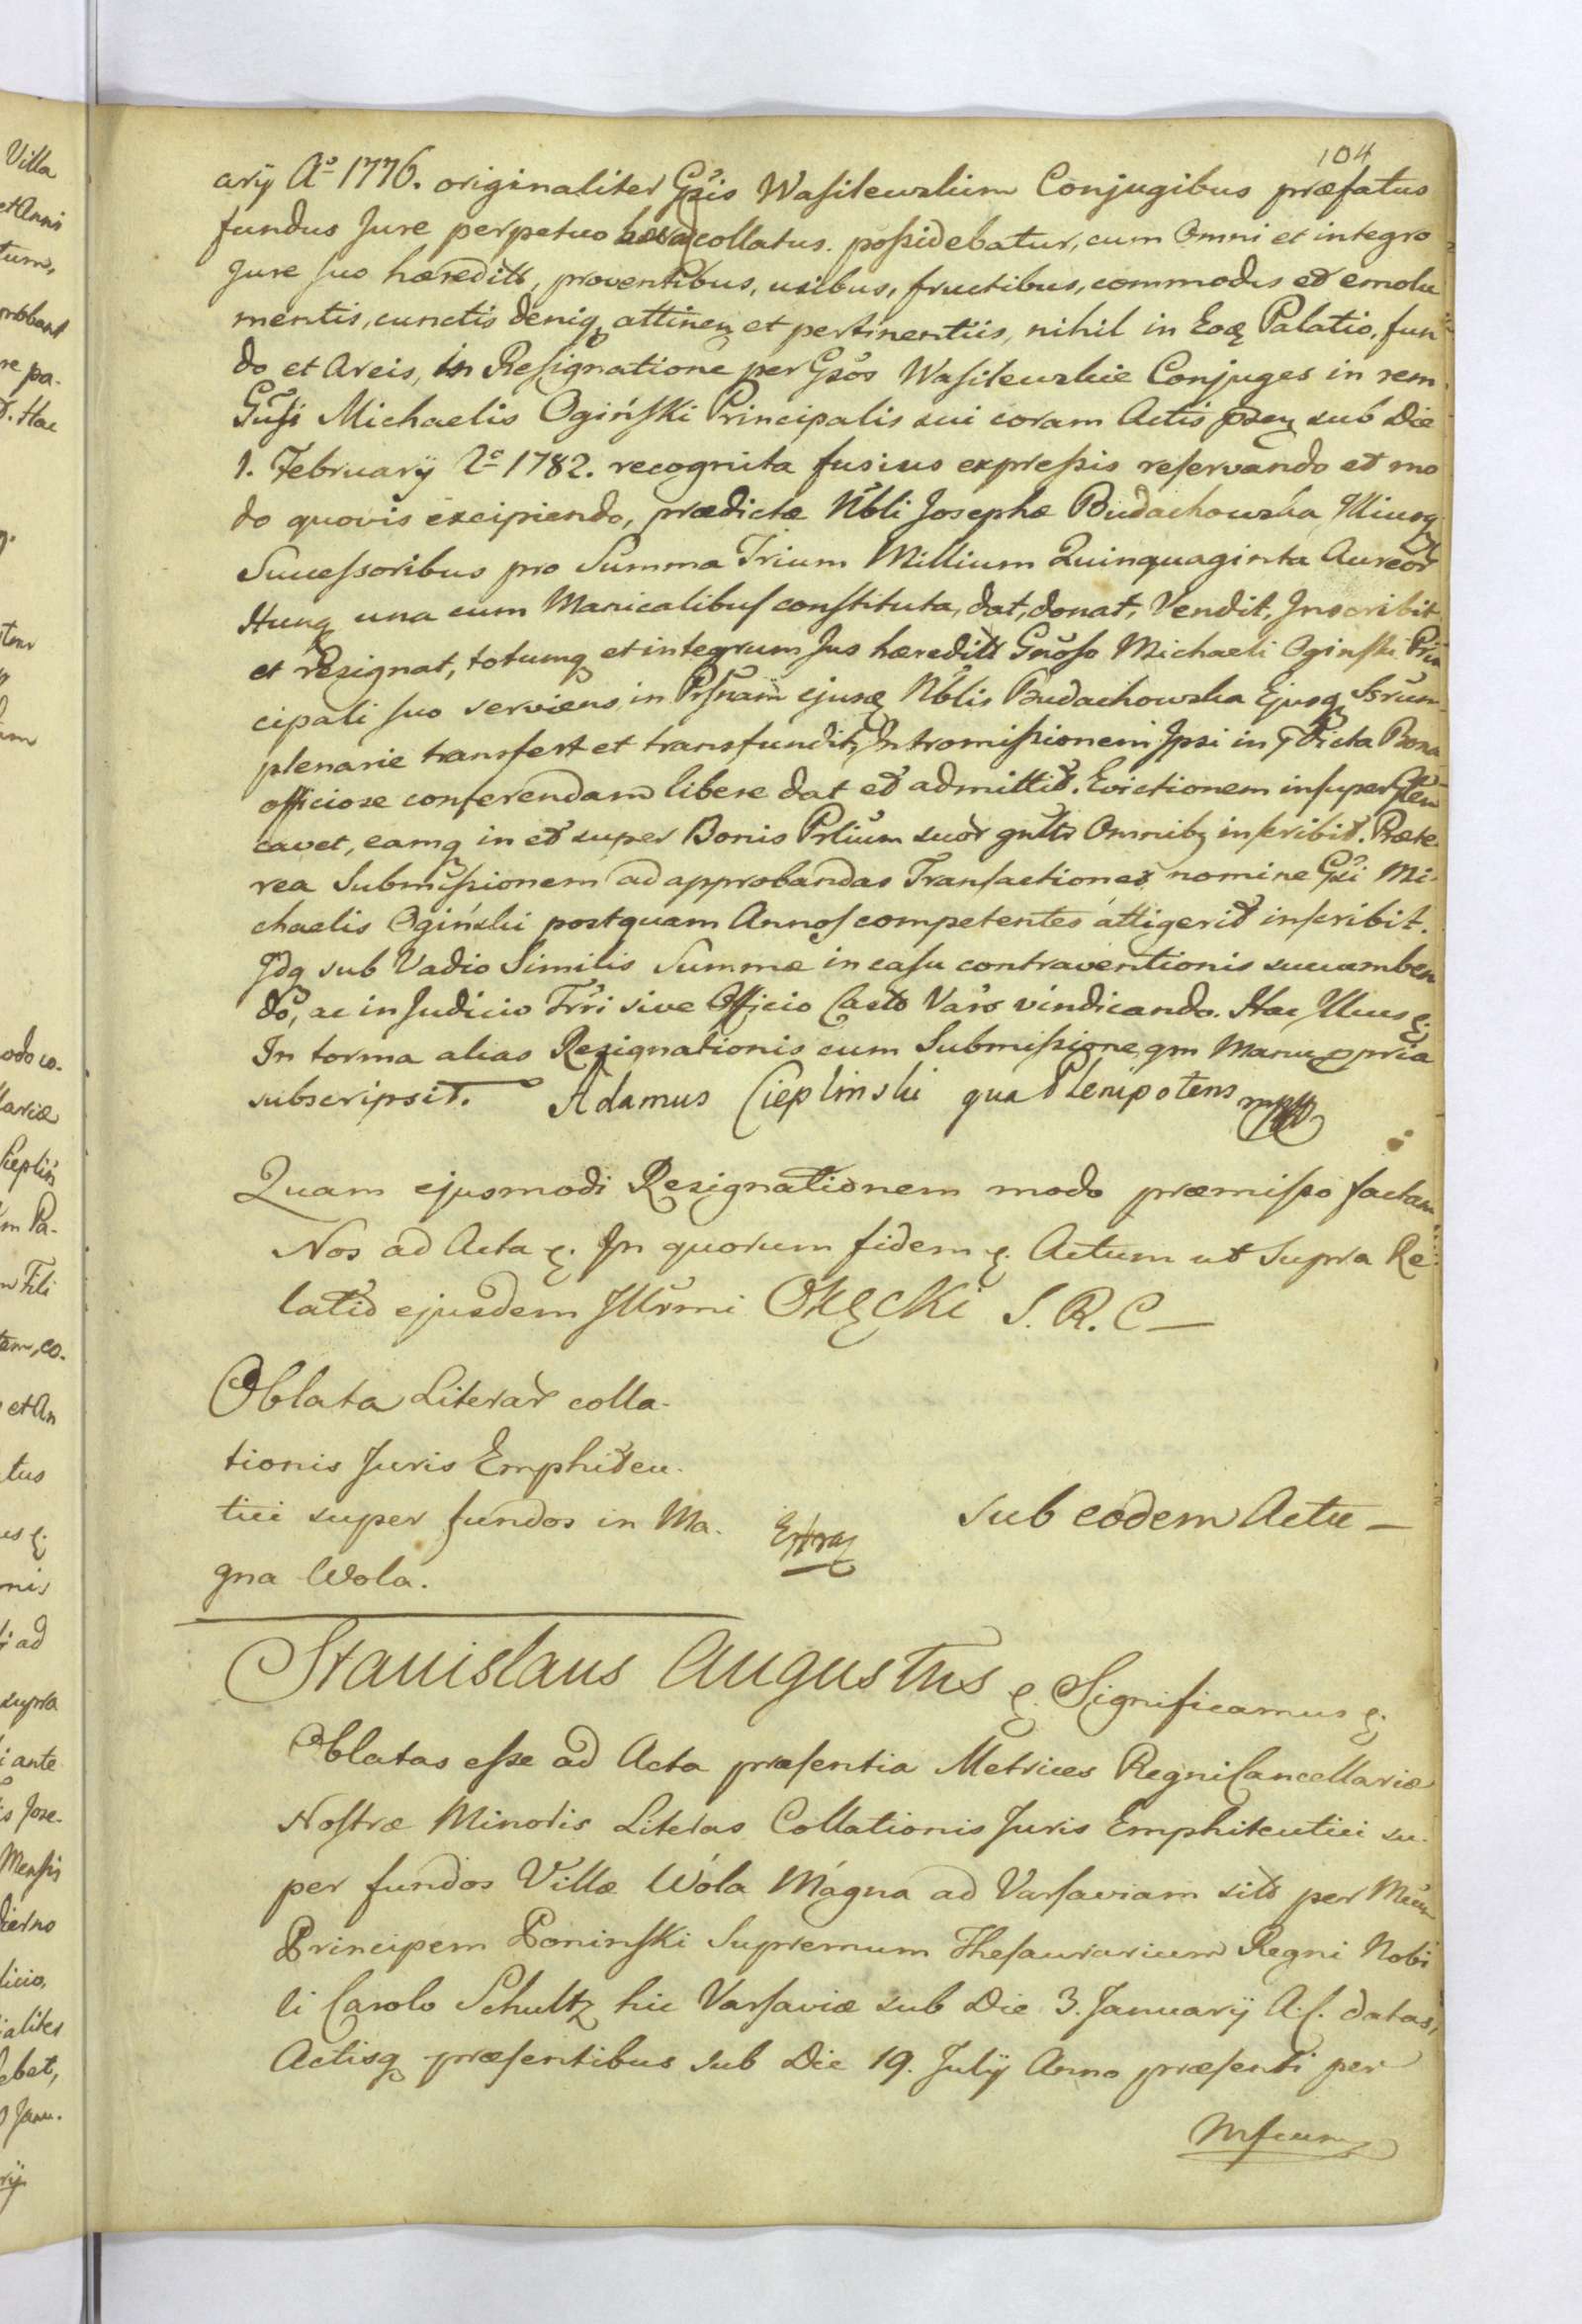 104
arÿ Aº 1776. originaliter Gsis Wasilewskim Conjugibus præfatus
fundus Jure perpetuo collatus. possidebatur, cum Omni et integro
Jure suo hæredits, proventibus, usibus, fructibus, commodis et emolu
mentis, cunctis deniq attinen et pertinentiis, nihil in Eoq Palatio, fun
do et Areis, in Resignatione per Gsos Wasilewskie Conjuges in rem
Gnsi Michaelis Ogiński Principalis sui coram Actis psen sub Die
1. Februarÿ Aº 1782. recognita fusius expressis reservando et mo
do quovis excipiendo, prædictæ Nbli Josephæ Budachowska Illiusq
Successoribus pro Summa Trium Millium Quinquaginta Aureor
Hung una cum Maricalibus constituta, dat, donat, Vendit, Inscribit
et Resignat, totumq et integrum Jus hæredits Gnoso Michaeli Oginski Prin
cipali suo serviens in Prsnam ejusq Nblis Budachowska Ejusq Ssrum
plenarie transfert et transfundit, Intromissionem Ipsi in pdicta Bona
officiose conferendam libere dat et admittit. Evictionem insuper Glem
cavet, eamq in et super Bonis Prlium suor gnlts Omnibq inscribit. Præte-
rea Submissionem ad approbandas Transactiones nomine Gsi Mi-
chaelis Ogiński postquam Annos competentes attigerit inscribit.
Idq sub Vadio Similis Summæ in casu contraventionis succumben
do, ac in Judicio Trri sive Officio Casts Vars vindicando. Hac Illius &.
In torma alias Resignationis cum Submissione qm Manu ppria
subscripsit. Adamus Cieplinski qua Plenipotens mpp
Quam ejusmodi Resignationem modo præmisso factam
Nos ad Acta &. In quorum fidem &. Actum ut Supra Re-
latio ejusdem Illrmi Okęcki S. R. C —
Oblata Literar colla-
tionis Juris Emphiteu-
tici super fundos in Ma-
gna Wola.
Extra
sub eodem Actu —
Stanislaus Augustus &. Significamus &.
Oblatas esse ad Acta præsentia Metrices Regni Cancellariæ
Nostræ Minoris Literas Collationis Juris Emphiteutici su-
per fundos Villæ Wola Magna ad Varsaviam sits per Mcum
Principem Poninski Supremum Thesaurarium Regni Nobi
li Carolo Schultz hic Varsaviæ sub Die 3. Januarÿ A. C. datas,
Actisq præsentibus sub Die 19. Julÿ Anno præsenti per
Mfcum